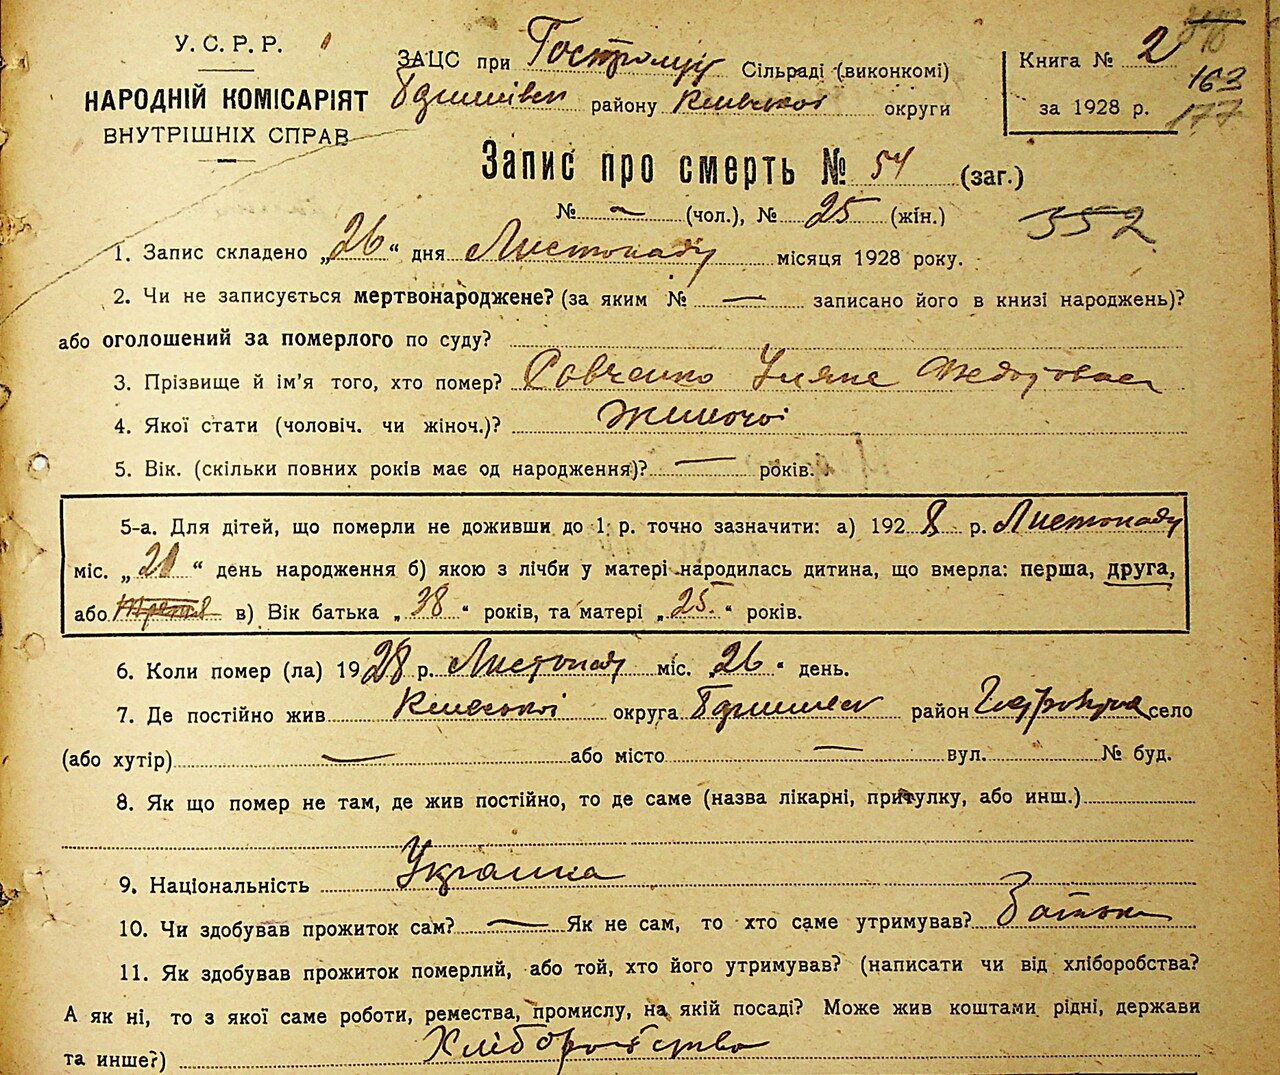 У. С. Р. Р.
НАРОДНІЙ КОМІСАРІЯТ
ВНУТРІШНІХ СПРАВ
ЗАЦС при Сільраді (виконкомі)
району Київської округи
Книга № 2
за 1928 р.
163
177
Запис про смерть № 54 (заг.)
№ — (чол.), № 25 (жін.)
352
1. Запис складено „26“ дня Листопаду місяця 1928 року.
2. Чи не записується мертвонароджене? (за яким № — записано його в книзі народжень)?
або оголошений за померлого по суду?
3. Прізвище й ім'я того, хто помер? Савченко Уляна Федотовна
4. Якої стати (чоловіч. чи жіноч.)? Жиночоі
5. Вік. (скільки повних років має од народження)? — років.
5-а. Для дітей, що померли не доживши до 1 р. точно зазначити: а) 1928 р. Листопаду
міс. „21“ день народження б) якою з лічби у матері народилась дитина, що вмерла: перша, друга,
або третя в) Вік батька „38“ років, та матері „25“ років.
6. Коли помер (ла) 1928 р. Листопаду міс. „26“ день.
7. Де постійно жив Киевскоі округа район село
(або хутір) — або місто — вул. № буд.
8. Як що помер не там, де жив постійно, то де саме (назва лікарні, притулку, або инш.)
9. Національність Украинка
10. Чи здобував прожиток сам? — Як не сам, то хто саме утримував? Батько
11. Як здобував прожиток померлий, або той, хто його утримував? (написати чи від хліборобства?
А як ні, то з якої саме роботи, ремества, промислу, на якій посаді? Може жив коштами рідні, держави
та инше?) Хліборобство